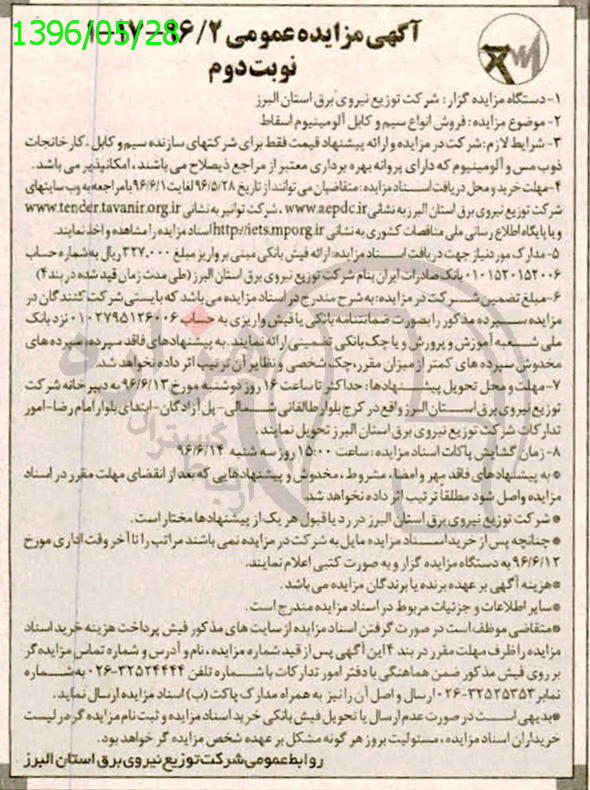 1396/05/28
آگهی مزایده عمومی ۹۶/۲-۱۷-۱
نوبت دوم
۱- دستگاه مزایده گزار: شرکت توزیع نیروی برق استان البرز
۲- موضوع مزایده: فروش انواع سیم و کابل آلومینیوم اسقاط
۳- شرایط لازم: شرکت در مزایده و ارائه پیشنهاد قیمت فقط برای شرکتهای سازنده سیم و کابل، کارخانجات
ذوب مس و آلومینیوم که دارای پروانه بهره برداری معتبر از مراجع ذیصلاح می باشند، امکانپذیر می باشد.
۴- مهلت خرید و محل دریافت اسناد مزایده: متقاضیان می توانند از تاریخ ۹۶/۵/۲۸ لغایت ۹۶/۶/۱ با مراجعه به وب سایتهای
شرکت توزیع نیروی برق استان البرز به نشانی www.aepdc.ir ، شرکت توانیر به نشانی www.tender.tavanir.org.ir
و یا پایگاه اطلاع رسانی ملی مناقصات کشوری به نشانی http://iets.mporg.ir اسناد مزایده را مشاهده و اخذ نمایند.
۵- مدارک مورد نیاز جهت دریافت اسناد مزایده: ارائه فیش بانکی مبنی بر واریز مبلغ ۳۲۷.۰۰۰ ریال به شماره حساب
۰۱۰۱۵۲۰۱۵۲۰۰۶ بانک صادرات ایران بنام شرکت توزیع نیروی برق استان البرز (طی مدت زمان قید شده در بند ۴)
۶- مبلغ تضمین شرکت در مزایده: به شرح مندرج در اسناد مزایده می باشد که بایستی شرکت کنندگان در
مزایده سپرده مذکور را بصورت ضمانتنامه بانکی یا فیش واریزی به حساب ۰۱۰۲۷۹۵۱۲۶۰۰۶ نزد بانک
ملی شعبه آموزش و پرورش و یا چک بانکی تضمینی ارائه نمایند. به پیشنهادهای فاقد سپرده، سپرده های
مخدوش سپرده های کمتر از میزان مقرر، چک شخصی و نظایر آن ترتیب اثر داده نخواهد شد.
۷- مهلت و محل تحویل پیشنهادها: حداکثر تا ساعت ۱۶ روز دوشنبه مورخ ۹۶/۶/۱۳ به دبیرخانه شرکت
توزیع نیروی برق استان البرز واقع در کرج بلوار طالقانی شمالی- پل آزادگان- ابتدای بلوار امام رضا- امور
تدارکات شرکت توزیع نیروی برق استان البرز تحویل نمایند.
۸- زمان گشایش پاکات اسناد مزایده: ساعت ۱۵:۰۰ روز سه شنبه ۹۶/۶/۱۴
* به پیشنهادهای فاقد مهر و امضا، مشروط ، مخدوش و پیشنهادهایی که بعد از انقضای مهلت مقرر در اسناد
مزایده واصل شود مطلقا ترتیب اثر داده نخواهد شد.
* شرکت توزیع نیروی برق استان البرز در رد یا قبول هر یک از پیشنهادها مختار است.
* چنانچه پس از خرید اسناد مزایده مایل به شرکت در مزایده نمی باشند مراتب را تا آخر وقت اداری مورخ
۹۶/۶/۱۲ به دستگاه مزایده گزار و به صورت کتبی اعلام نمایند.
* هزینه آگهی بر عهده برنده یا برندگان مزایده می باشد.
* سایر اطلاعات و جزئیات مربوط در اسناد مزایده مندرج است.
* متقاضی موظف است در صورت گرفتن اسناد مزایده از سایت های مذکور فیش پرداخت هزینه خرید اسناد
مزایده را ظرف مهلت مقرر در بند ۴ این آگهی پس از قید شماره مزایده، نام و آدرس و شماره تماس مزایده گر
بر روی فیش مذکور ضمن هماهنگی با دفتر امور تدارکات با شماره تلفن ۳۲۵۲۴۴۴۴-۰۲۶ به شماره
نمابر ۳۲۵۲۵۳۵۳-۰۲۶ ارسال و اصل آن را نیز به همراه مدارک پاکت (ب) اسناد مزایده ارسال نماید.
* بدیهی است در صورت عدم ارسال یا تحویل فیش بانکی خرید اسناد مزایده و ثبت نام مزایده گر در لیست
خریداران اسناد مزایده، مسئولیت بروز هر گونه مشکل بر عهده شخص مزایده گر خواهد بود.
روابط عمومی شرکت توزیع نیروی برق استان البرز